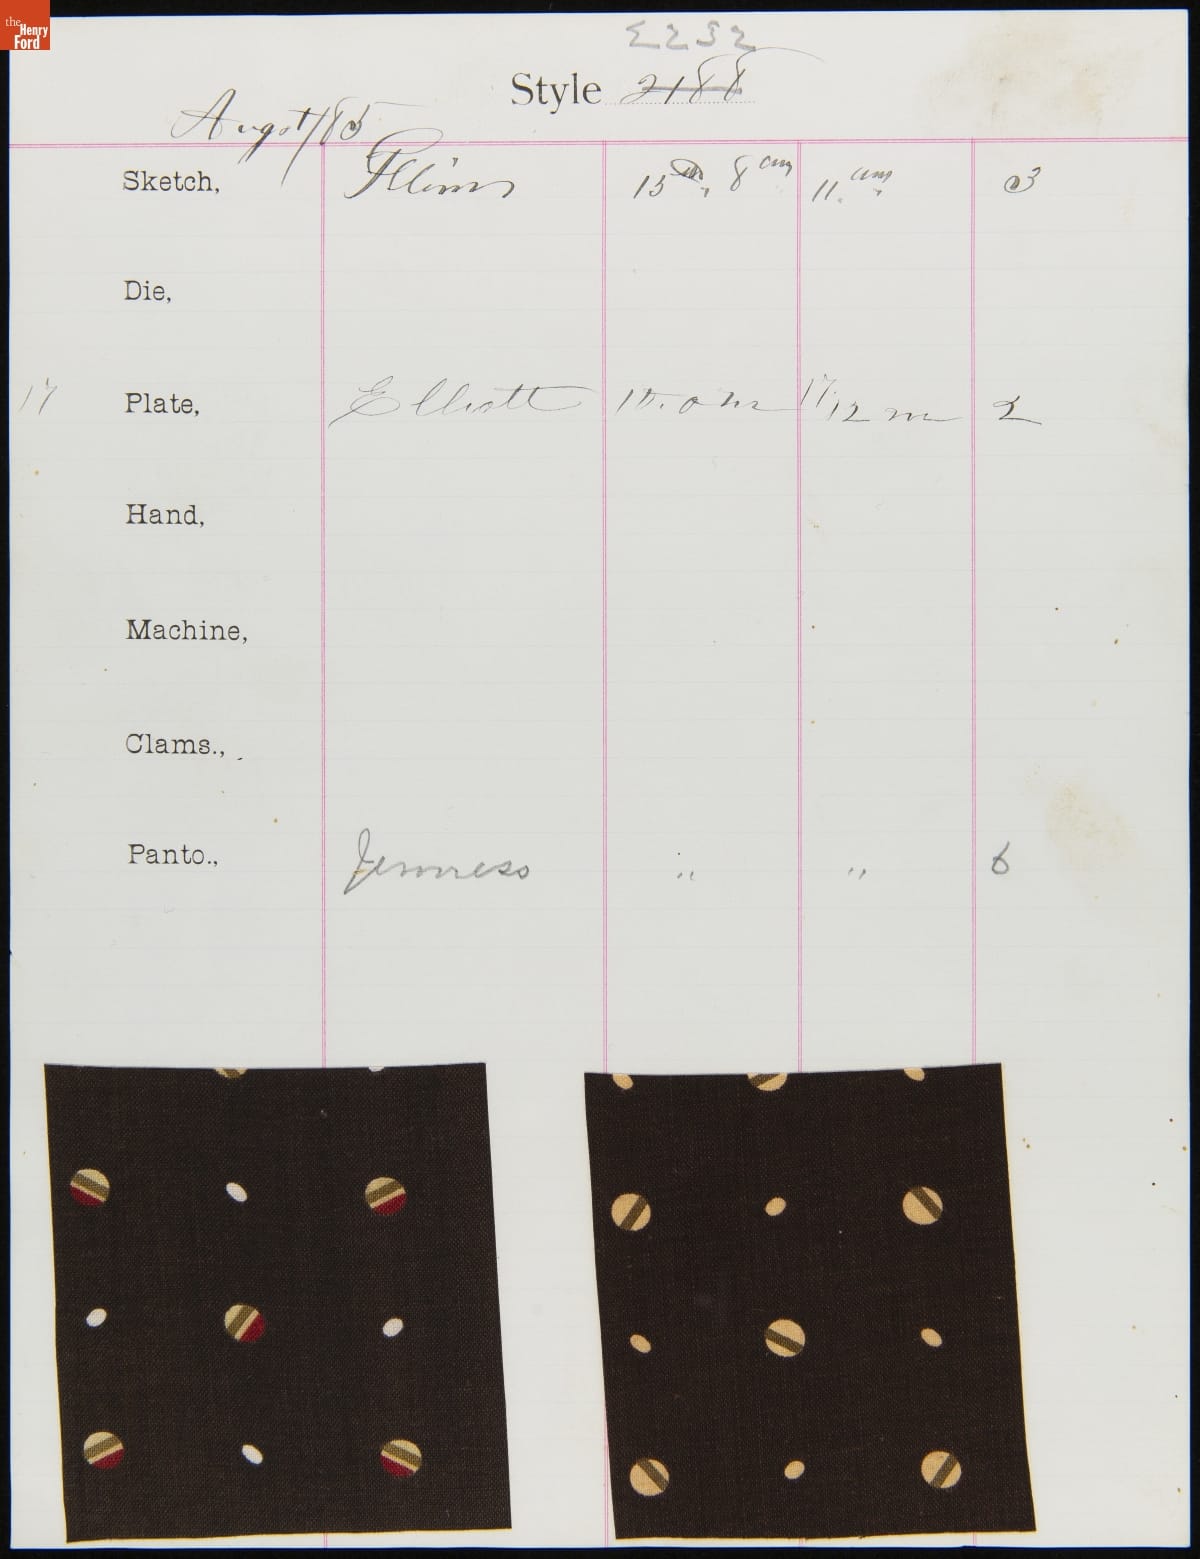 the Henry Ford
2252
Style 2188
Augst/85
Sketch, 15 8 am 11 am 3
Die,
17 Plate, Elliott 10. a m 17/12 m 2
Hand,
Machine,
Clams.,
Panto., Jenness " " 6